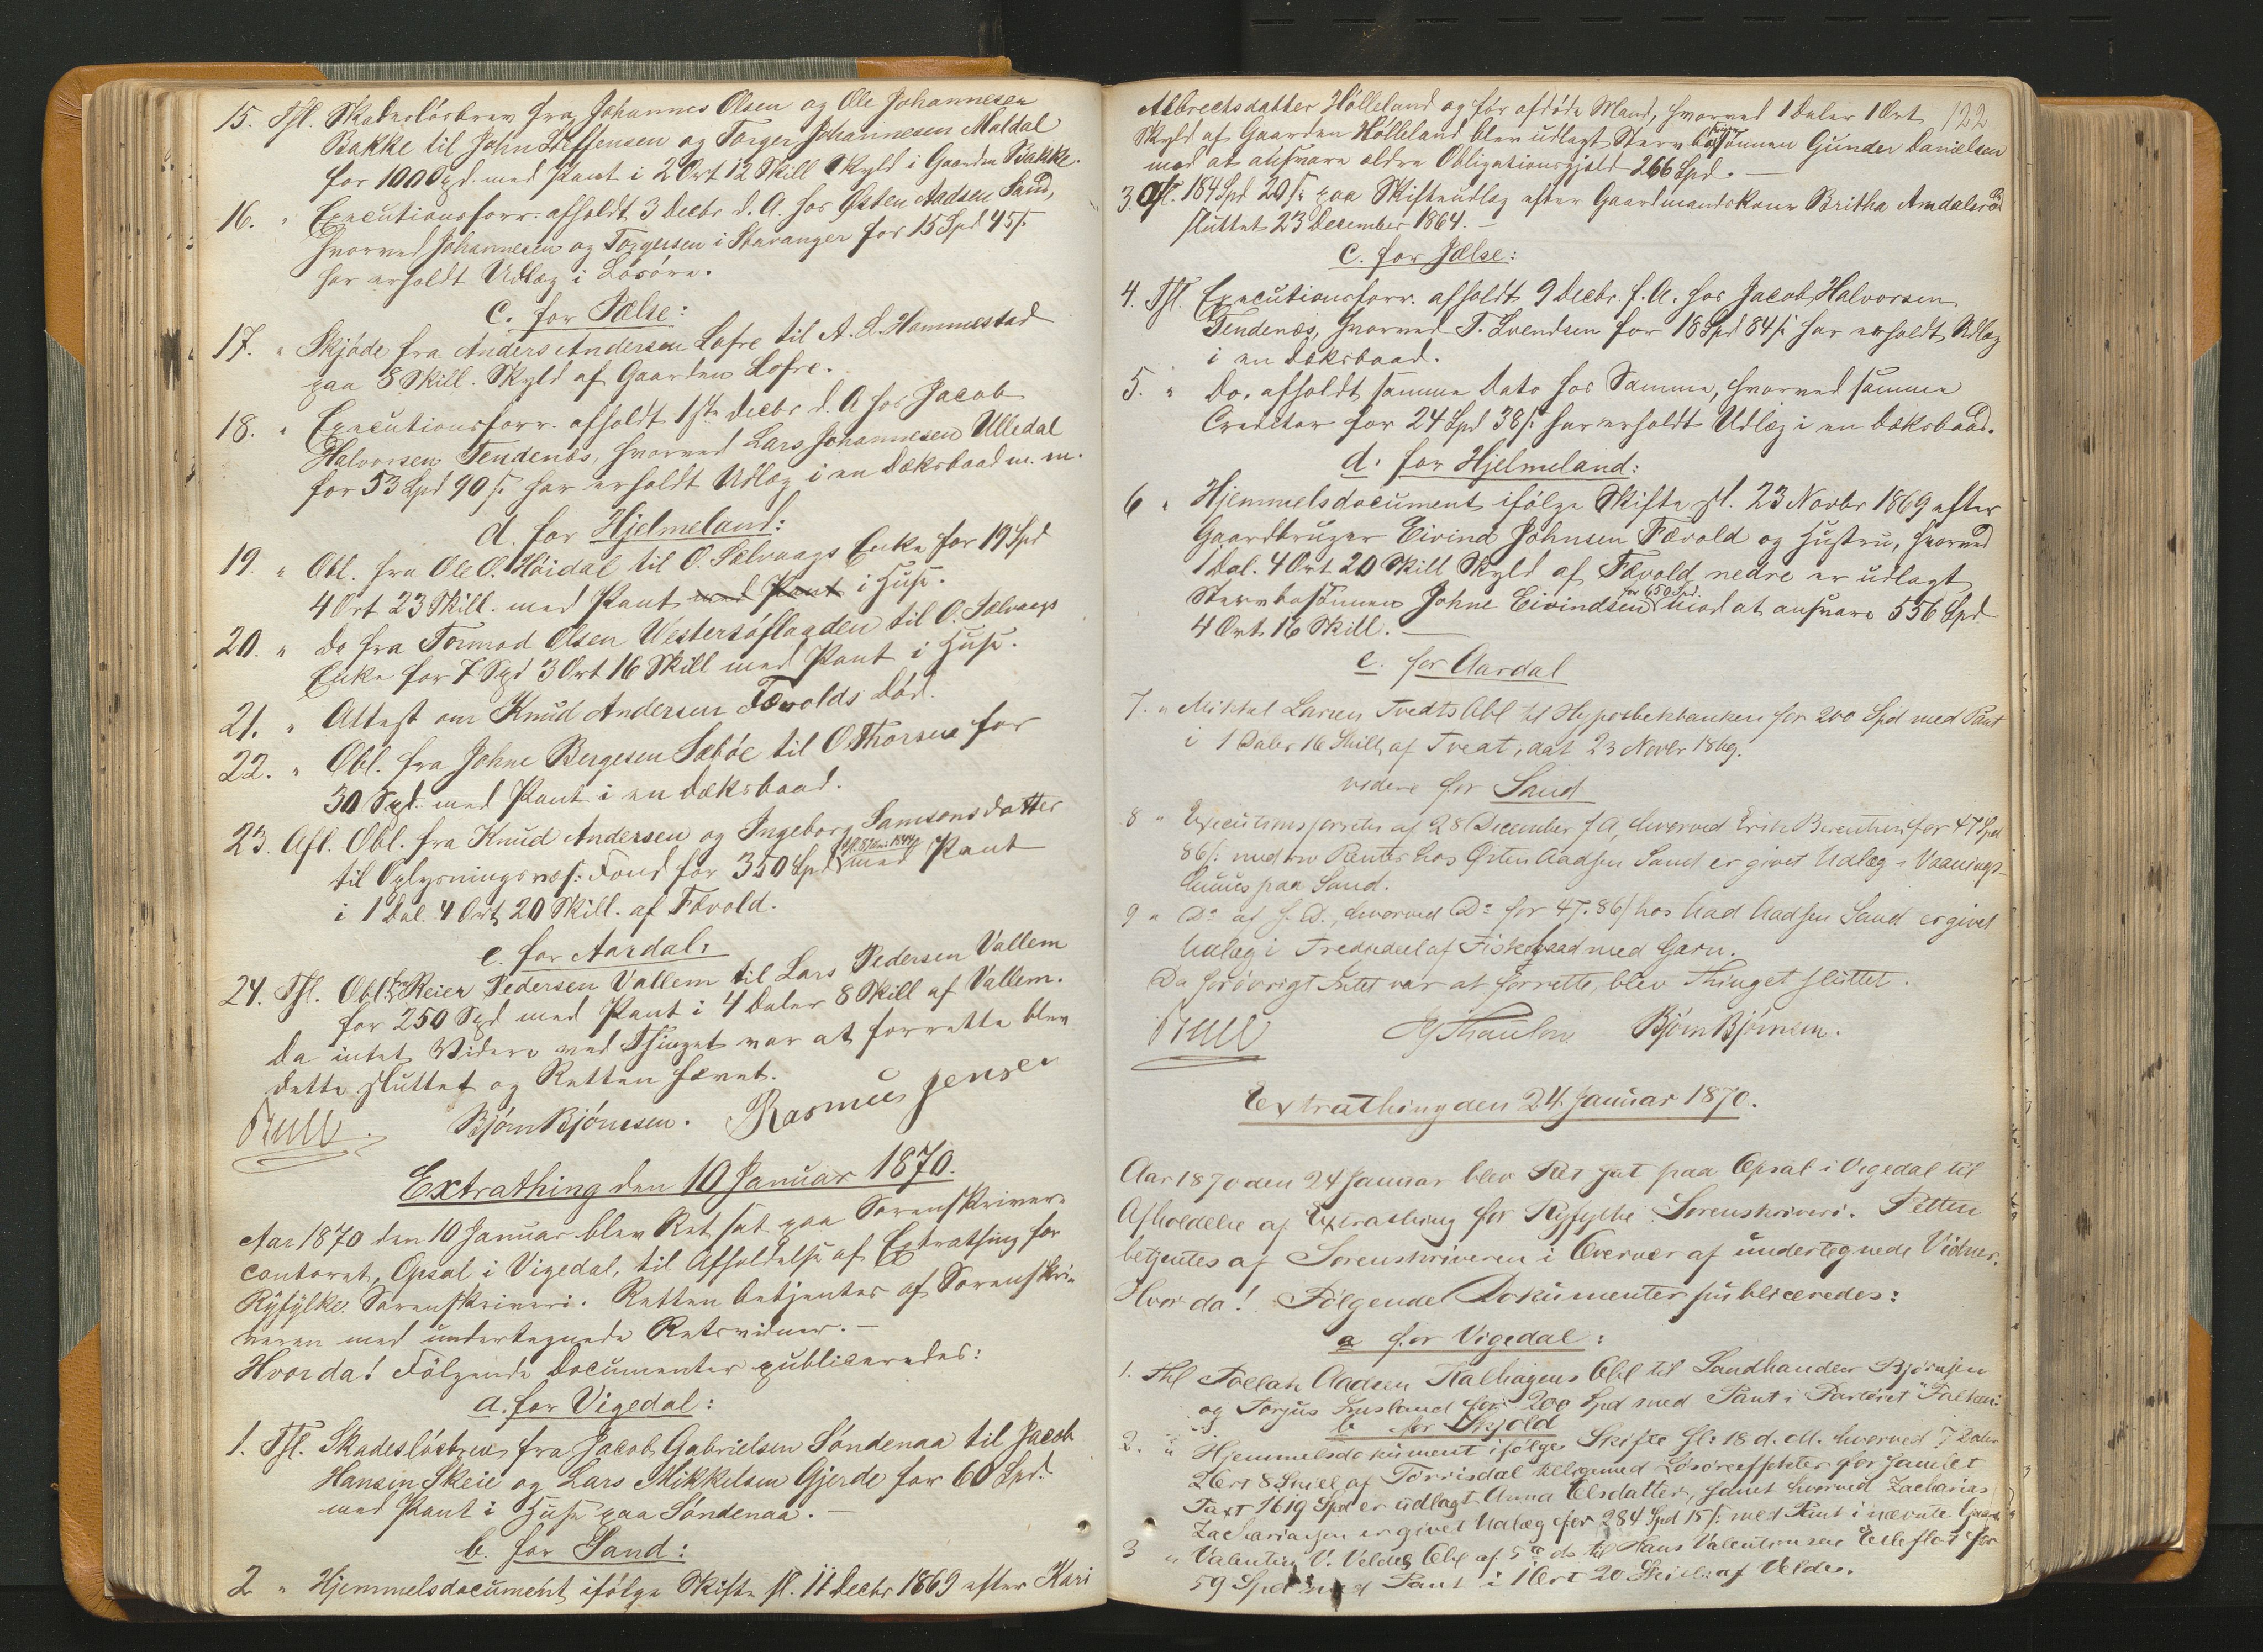 15. Thl. Skadesløsbrev fra Johannes Olsen og Ole Johannesen
Bakke til John Steffensen og Torger Johannesen Maldal
for 100 Spd. med Pant i 2 Ort 12 Skill Skyld i Gaarden Bakke.
16. " Executionsforr. afholdt 3 Decbr d. A. hos Østen Aadsen Sand,
hvorved Johannesen og Torgersen i Stavanger for 15 Spd 45 s.
har erholdt Udlæg i Løsøre.
c. for Jælse:
17. " Skjøde fra Anders Andersen Lofre til A. L. Hammestad
paa 8 Skill. Skyld af Gaarden Lofre.
18. " Executionsforr. afholdt 1ste Decbr d. A hos Jacob
Halvorsen Tendenæs, hvorved Lars Johannesen Ulledal
for 53 Spd 90 s. har erholdt Udlæg i en Dæksbaad m. m.
d. for Hjelmeland:
19. " Obl. fra Ole O. Høidal til O. Sælvaags Enke for 19 Spd
4 Ort 23 Skill. med Pant med Pant i Huse.
20. " do fra Tormod Olsen Westersøflagden til O. Sælvaags
Enke for 7 Spd 3 Ort 16 Skill med Pant i Huse.
21. " Attest om Knud Andersen Fævolds Død.
22. " Obl. fra Johne Bergesen Sæbøe til O. Thorsen for
30 Spd. med Pant i en Dæksbaad.
23. Afl. Obl. fra Knud Andersen og Ingeborg Samsonsdatter
til Oplysningsvæs: Fond for 350 Spd med Pant
i 1 Dal. 4 Ort 20 Skill. af Fævold.
e. for Aardal:
24. Thl. Obl. fra Reier Pedersen Vallem til Lars Pedersen Vallem
for 250 Spd med Pant i 4 Daler 8 Skill af Vallem.
Da intet Videre ved Thinget var at forrette blev
dette sluttet og Retten hævet.
Bjørn Bjørnsen. Rasmus Jensen
Extrathing den 10 Januar 1870.
Aar 1870 den 10 Januar blev Ret sat paa Sorenskriver-
contoret, Opsal i Vigedal, til Afholdelse af Extrathing for
Ryfylke Sorenskriveri. Retten betjentes af Sorenskri-
veren med undertegnede Retsvidner.—
Hvorda! Følgende Documenter publiceredes:
a. for Vigedal:
1. Thl. Skadesløsbrev fra Jacob Gabrielsen Søndenaa til Jacob
Hansen Skeie og Lars Mikkelsen Gjerde for 60 Spd.
med Pant i Huse paa Søndenaa.—
b. for Sand:
2 " Hjemmelsdocument ifølge Skifte sl. 11 Decbr 1869 efter Kari
122
Albrectsdatter Hølleland og før afdøde Mand, hvorved 1 Daler 1 Ort
Skyld af Gaarden Hølleland blev udlagt Stervbosønnen Gunder Danielsen
mod at ansvare ældre Obligationsgjæld 266 Spd.—
3. Afl. 184 Spd 20 s. paa Skifteudlæg efter Gaardmandskone Britha Amdalsrød
sluttet 23 December 1864.—
c. for Jælse:
4. Thl. Executionsforr. afholdt 9 Decbr. f. A. hos Jacob Halvorsen
Tendenæs, hvorved T. Svendsen for 18 Spd 84 s. har erholdt Udlæg
i en Dæksbaad.
5. " Do. afholdt samme Dato hos Samme, hvorved samme
Creditor for 24 Spd 38 s. har erholdt Udlæg i en Dæksbaad.
d. for Hjelmeland:
6 " Hjemmelsdocument ifølge Skifte sl. 23 Novbr 1869 efter
Gaardbruger Eivind Johnsen Fævold og Hustru, hvorved
1 Dal. 4 Ort 20 Skill Skyld af Fævold nedre er udlagt
for 650 Spd.
Stervbosønnen Johne Eivindsen mod at ansvare 556 Spd
4 Ort 16 Skill.—
e. for Aardal
7. " Mikkel Larsen Tvedts Obl til Hypothekbanken for 200 Spd med Pant
i 1 Daler 16 Skill af Tveat, dat 23 Novbr 1869.
videre for Sand
8 " Executionsforretn af 28 December f A, hvorved Erik Berentsen for 47 Spd
86 s. med Renter hos Østen Aadsen Sand er givet Udlæg i Vaanings-
huus paa Sand.
9 " Do af s. D., hvorved Do for 47. 86 s hos Aad Aadsen Sand er givet
Udlæg i Tredjedeel af Fiskebaad med Garn.
Da forøvrigt Intet var at forrette, blev Thinget sluttet.
Bjørn Bjørnsen.
Extrathing den 24. Januar 1870.
Aar 1870 den 24 Januar blev Ret sat paa Opsal i Vigedal til
Afholdelse af Extrathing for Ryfylke Sorenskriveri. Retten
betjentes af Sorenskriveren i Overvær af undertegnede Vidner.
Hvorda! Følgende Dokumenter publiceredes:
a for Vigedal:
1. Thl Tollak Aadsen Kalhagens Obl til Landhandler Bjørnsen
og Torjus for 200 Spd med Pant i
b for Skjold
2. " Hjemmelsdokument ifølge Skifte sl: 18 d. M. hvorved 7 Daler
2 Ort 8 Skill af Torrisdal tilligemed Løsøreeffekter for samlet
Taxt 1619 Spd er udlagt Anna Olsdatter, samt hvorved Zacharias
Zachariassen er givet Udlæg for 284 Spd 15 s. med Pant i nævnte Gaard
3 " Valentin V. Veldes Obl af 5te ds til Hans Valentinsen for
59 Spd med Pant i 1 Ort 20 Skill: af Velde.